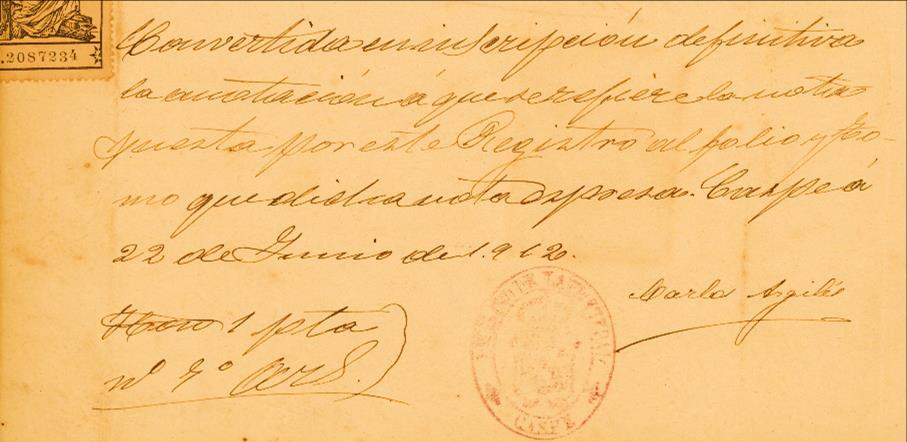 .2087234
Convertida en inscripción definitiva
la anotación á que se refiere la nota
puesta por este Registro al folio y to-
mo que dicha nota espresa. Caspe á
22 de Junio de 1.912.
Hon 1 pta
nº 7º Arl.
CASPE